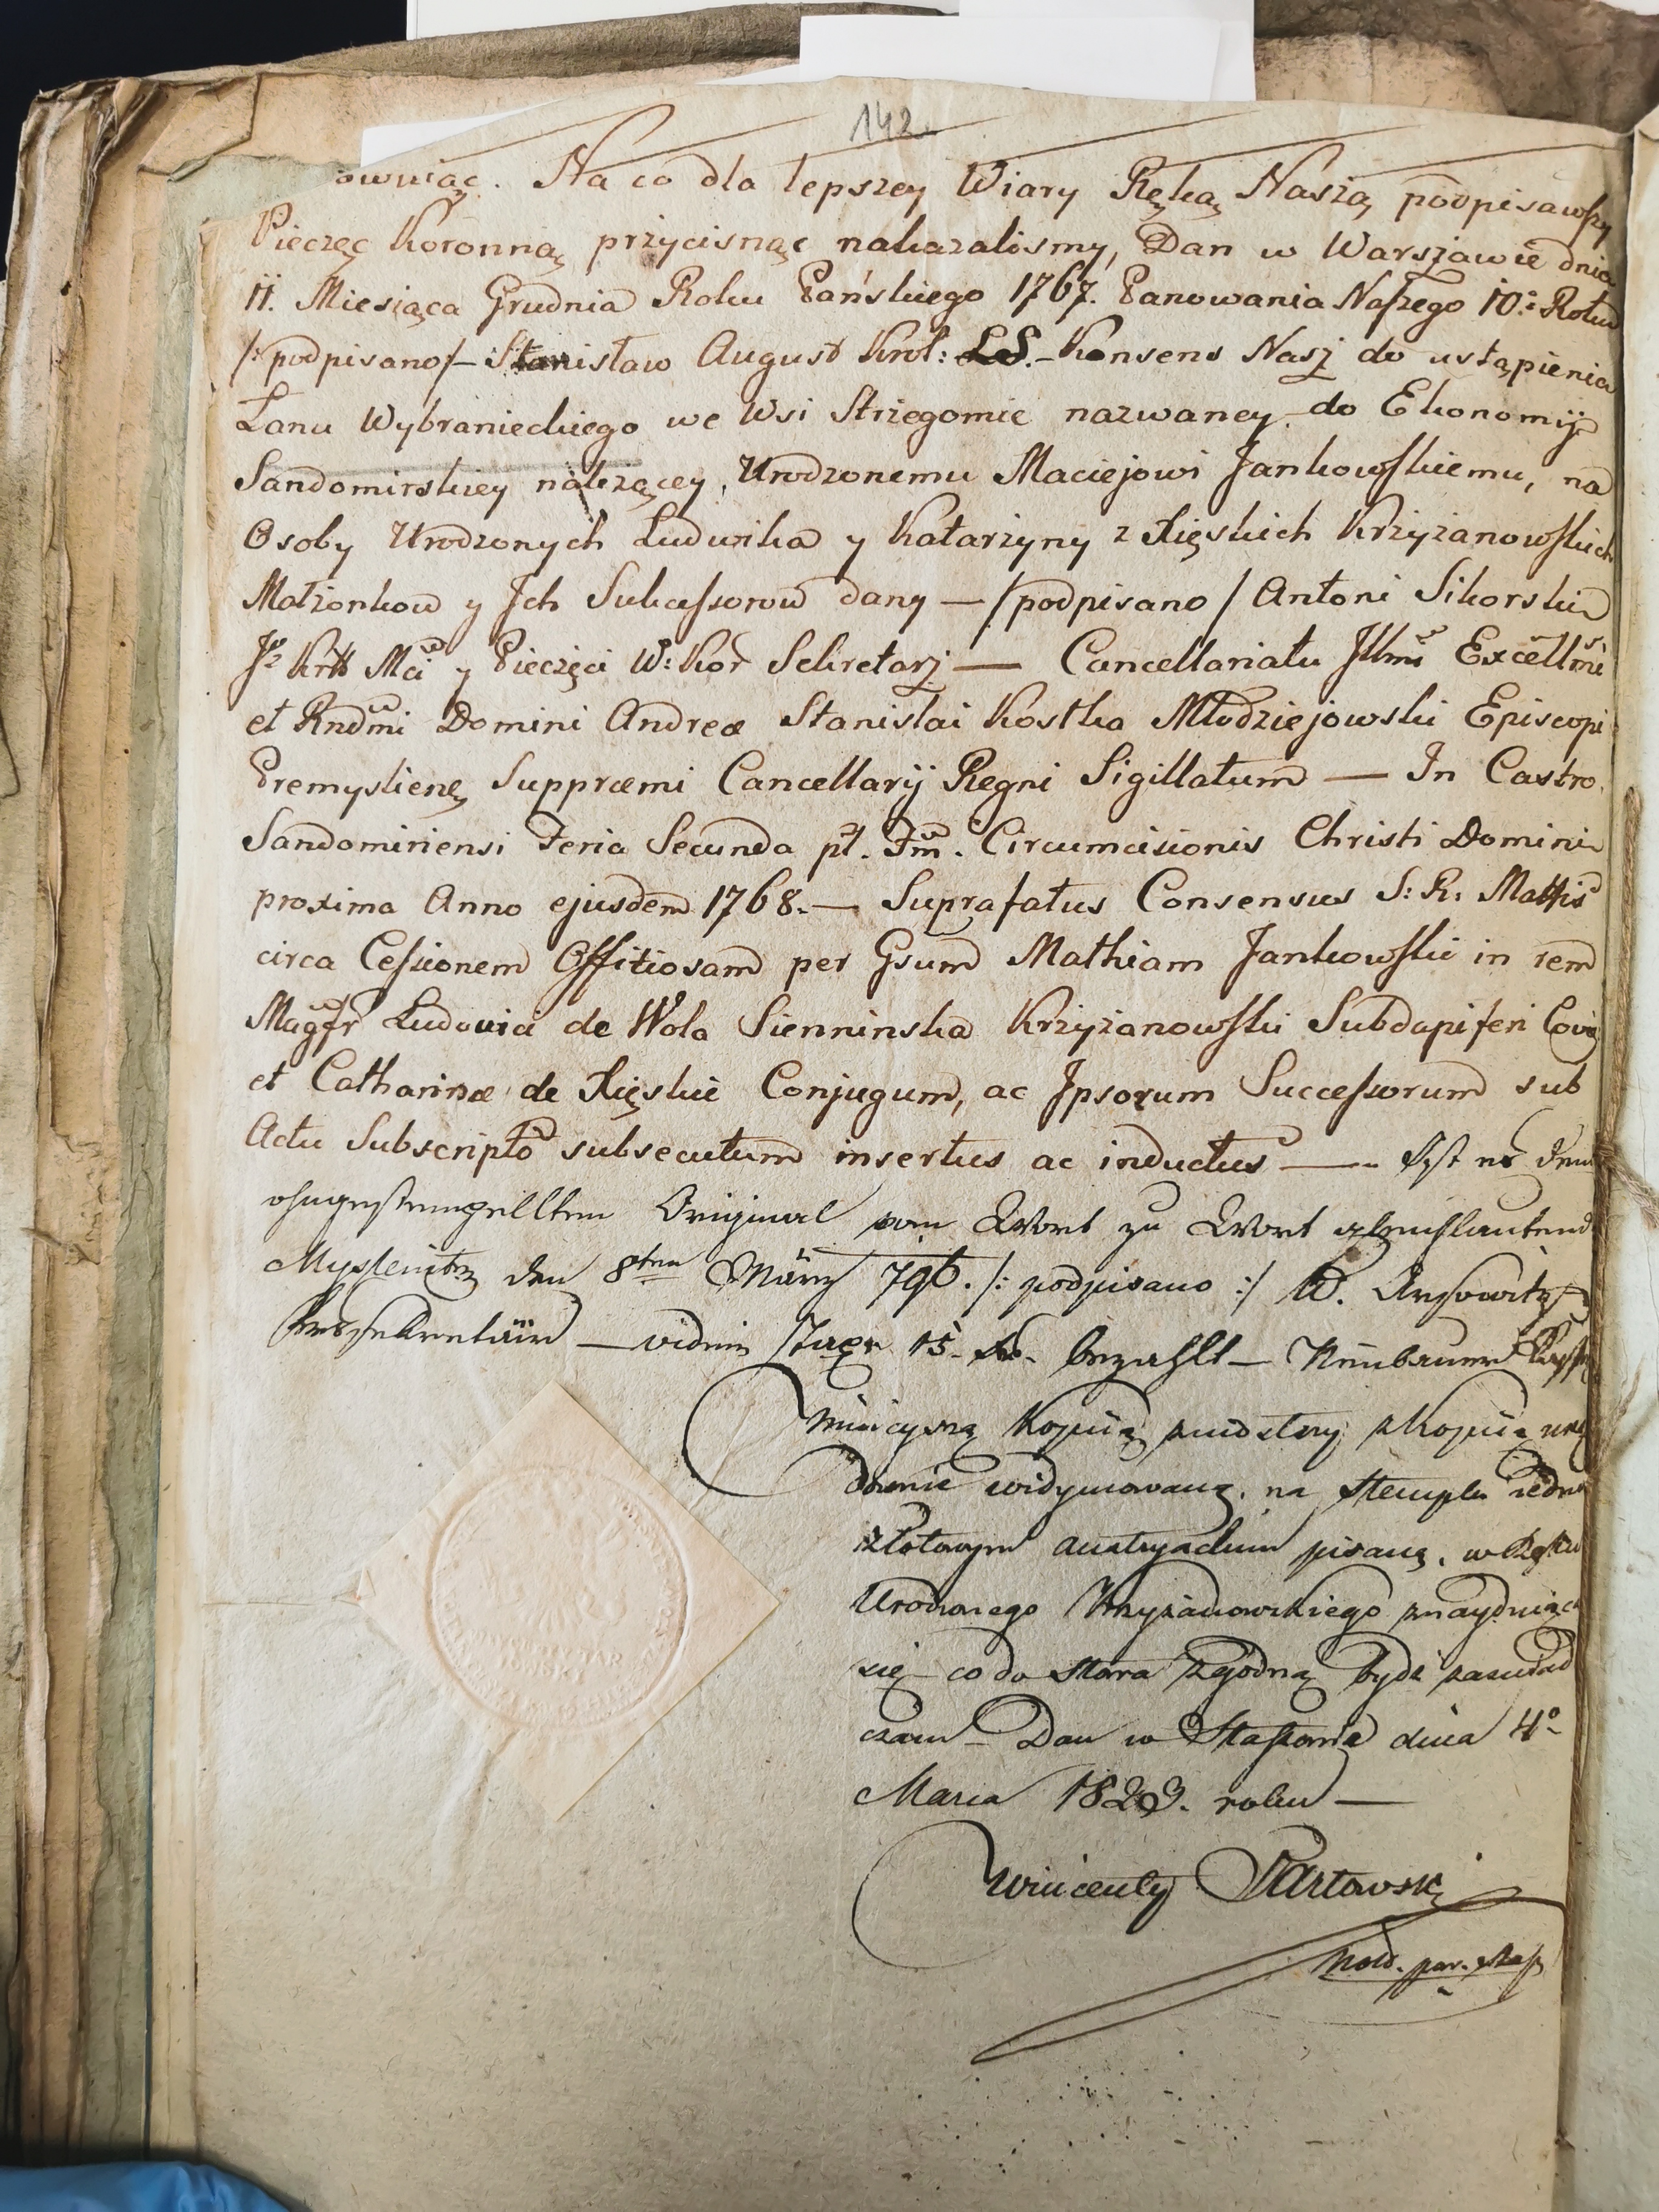 142.
owniąc. Na co dla lepszey Wiary Ręką Naszą podpisawszy
Pieczęc Koronną przycisnąc nakazalismy, Dan w Warszawie dnia
11. Miesiąca Grudnia Roku Pańskiego 1767. Panowania Naszego 10.° Roku
/:podpisano/– Stanisław August Krol: LS.– Konsens Nasz do ustąpienia
Łanu Wybranieckiego we Wsi Strzegomie nazwaney do Ekonomij
Sandomirskiey należącey, Urodzonemu Maciejowi Jankowskiemu, na
Osoby Urodzonych Ludwika y Katarzyny z Xięskich Krzyżanowskich
Małżonkow y Jch Sukcessorow dany — /podpisano/ Antoni Sikorski
Mci y Pieczęci W: Kor Sekretarz — Cancellariatu Jllmi Excellmi
et Rndmi Domini Andreæ Stanislai Kostka Młodziejowski Episcopi
Premyslienę Suppræmi Cancellarij Regni Sigillatum — In Castro
Sandomiriensi Feria Secunda pt. Fm. Circumcisionis Christi Domini
proxima Anno ejusdem 1768.— Suprafatus Consensus S: R: Mattis
circa Cessionem Offitiosam per Gsum Mathiam Jankowski in rem
Magfr Ludovici de Wola Sienninska Krzyżanowski Subdapiferi Covię
et Catharinæ de Xięskie Conjugum, ac Jpsorum Successorum sub
Actu Subscripto subsecutum insertus ac inductus —– Jst es dem
ohngestempellten Original von Wort zu Wort gleichlautend
Myslenitz den 8ten März 796. /: podpisano :/ W.
Krssekretair — vidim Taxe 15. bezahlt — Neubauer
Ninieyszą kopiią z kopiią urzę
downie widymowaną, na stemplu iedno
złotowym austryackim pisaną, w Ręku
Urodzonego Krzyżanowskiego znayduiącą
się – co do słowa zgodną bydź zaswiad
czam – Dan w Staszowie dnia 4°
Marca 1823. roku —
Wincenty Tartowski